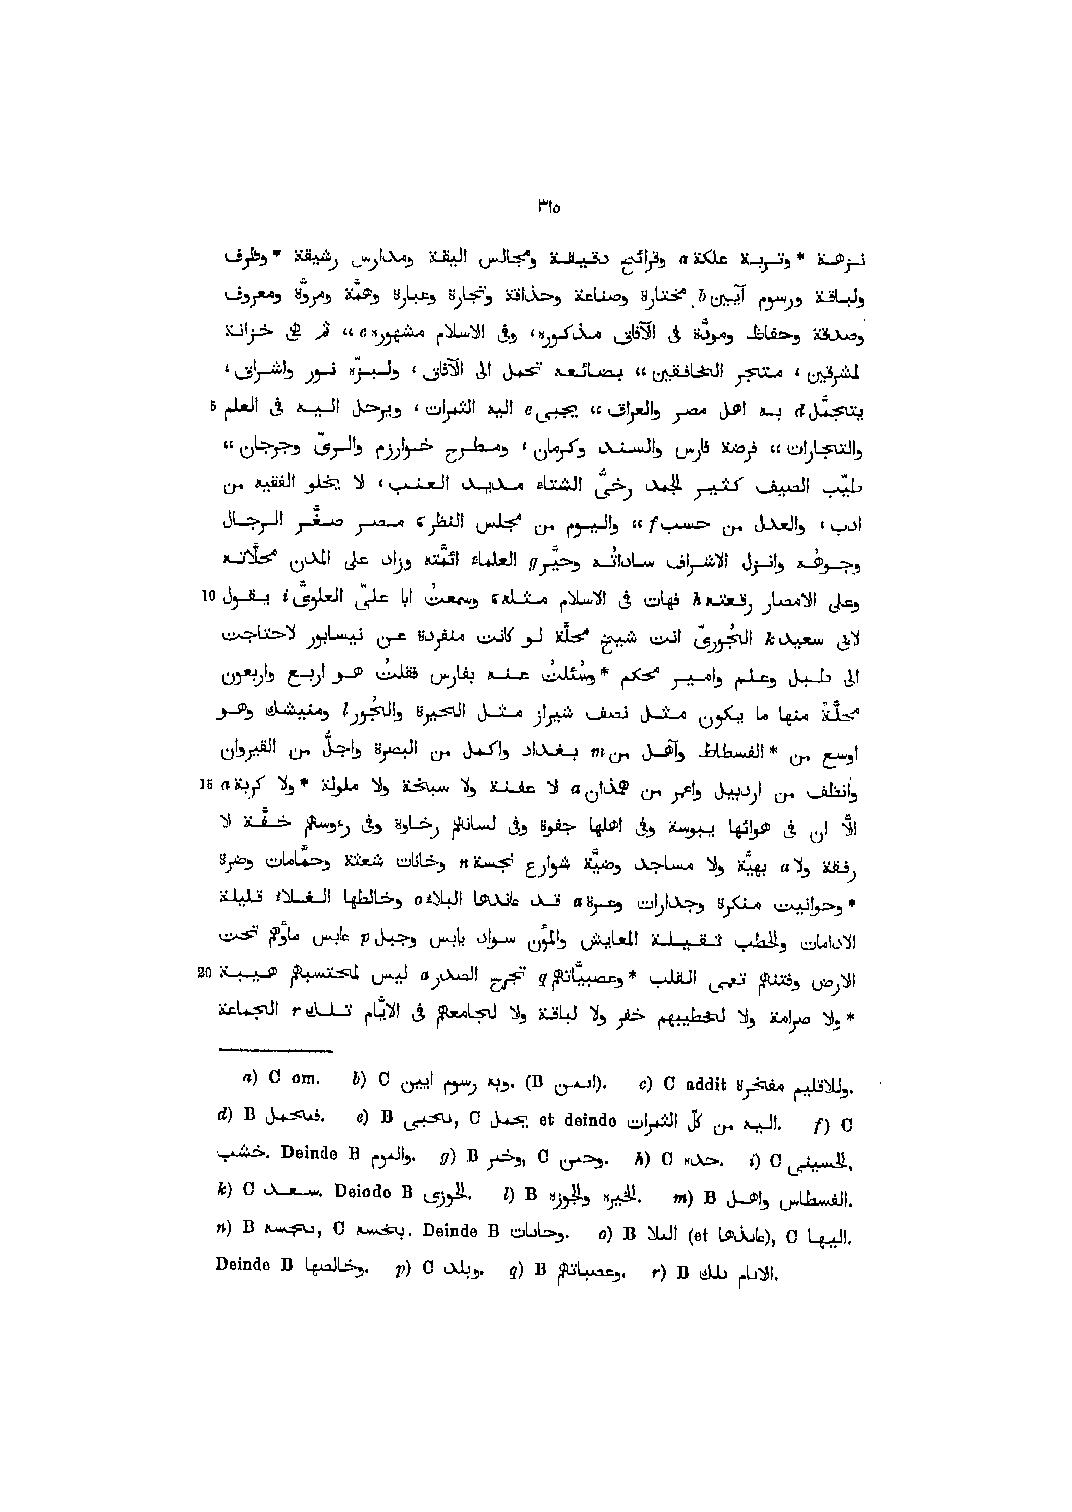 ٣١٥
نزهة *وتربة علكة a وقرائح دقيقة ومجالس اليقة ومدارس رشيقة *وظرف
ولباقة ورسوم آيين b مختارة وصناعة وحذاقة وتجارة وعبارة وهمّة ومروّة ومعروف
وصدقة وحفاظ ومودّة فى الآفاق مذكوره، وفى الاسلام مشهوره c "ثم هى خزانة
لمشرقين ، متتجر الخافقين" بضائعه تحمل الى الآفاق، ولبزّه نور واشراق،
5 يتجمّل d به اهل مصر والعراق" يجبى e اليه الثمرات، ويرحل اليه فى العلم
والتجارات" فرضة فارس والسند وكرمان، ومطرح خوارزم والرىّ وجرجان"
طيّب الصيف كثير لجمد رخىّ الشتاء مديد العنب، لا يخلو الفقيه من
ادب، والعدل من حسب f" واليوم من مجلس النظر c مصر صغّر الرجال
وجوهُه وانزل الاشراف ساداتُه وحيَّر g العلماء ائمّته وزاد على المدن محلّاته
10 وعلى الامصار رقعته h فهات فى الاسلام مثله c وسمعتُ ابا علىّ العلوىَّ i يقول
لابى سعيد k الجُورىّ انت شيخ محلّة لو كانت منفردة عن نيسابور لاحتاجت
الى طبل وعلم وامير محكم *وسُئلتُ عنه بفارس فقلتُ هو اربع واربعون
محلّةً منها ما يكون مثل نصف شيراز مثل الحيرة والجُور l ومنيشك وهو
اوسع من *الفسطاط وآهل من m بغداد واكمل من البصرة واجلُّ من القيروان
15 وأنظف من اردبيل واعمر من همذان a لا عفنة ولا سبخة ولا ملولة *ولا كربة a
الّا ان فى هوائها يبوسة وفى اهلها جفوة وفى لسانهم رخاوة وفى رءوسهم خفّة لا
رفقة ولا a بهيّة ولا مساجد وضيّة شوارع نجسة n وخانات شعثة وحمّامات وضرة
*وحوانيت منكرة وجدارات وعرة a قد عاندها البلاء o وخالطها الغلاء قليلة
الادامات ولحطب ثقيلة المعايش والمُؤن سواد يابس وجبل p عابس ماؤهم تحت
20 الارض وفتنهم تعمى القلب *وعصبيّاتهم q تجرح الصدر a ليس لمحتسبهم هيبة
*ولا صرامة ولا لخطيبهم خفر ولا لباقة ولا لجامعهم فى الايّام تلك r الجماعة
a) C om. b) C وبه رسوم ايين. (B ايمن). c) C addit وللاقليم مفخرة.
d) B فيتحمل. e) B تجبى, C يحمل et deinde اليه من كلّ الثمرات. f) C
خشب. Deinde B واليوم. g) B وخبر, C وحسن. h) C حده. i) C الحسينى.
k) C سعد. Deinde B الجوزى. l) B الخيره والجوزه. m) B الفسطاس واهل.
n) B , C بخسه. Deinde B وحانات. o) B البلا (et عايدها), C اليها.
Deinde B وخالصها. p) C وبلد. q) B وعصباتهم. r) B الانام تلك.